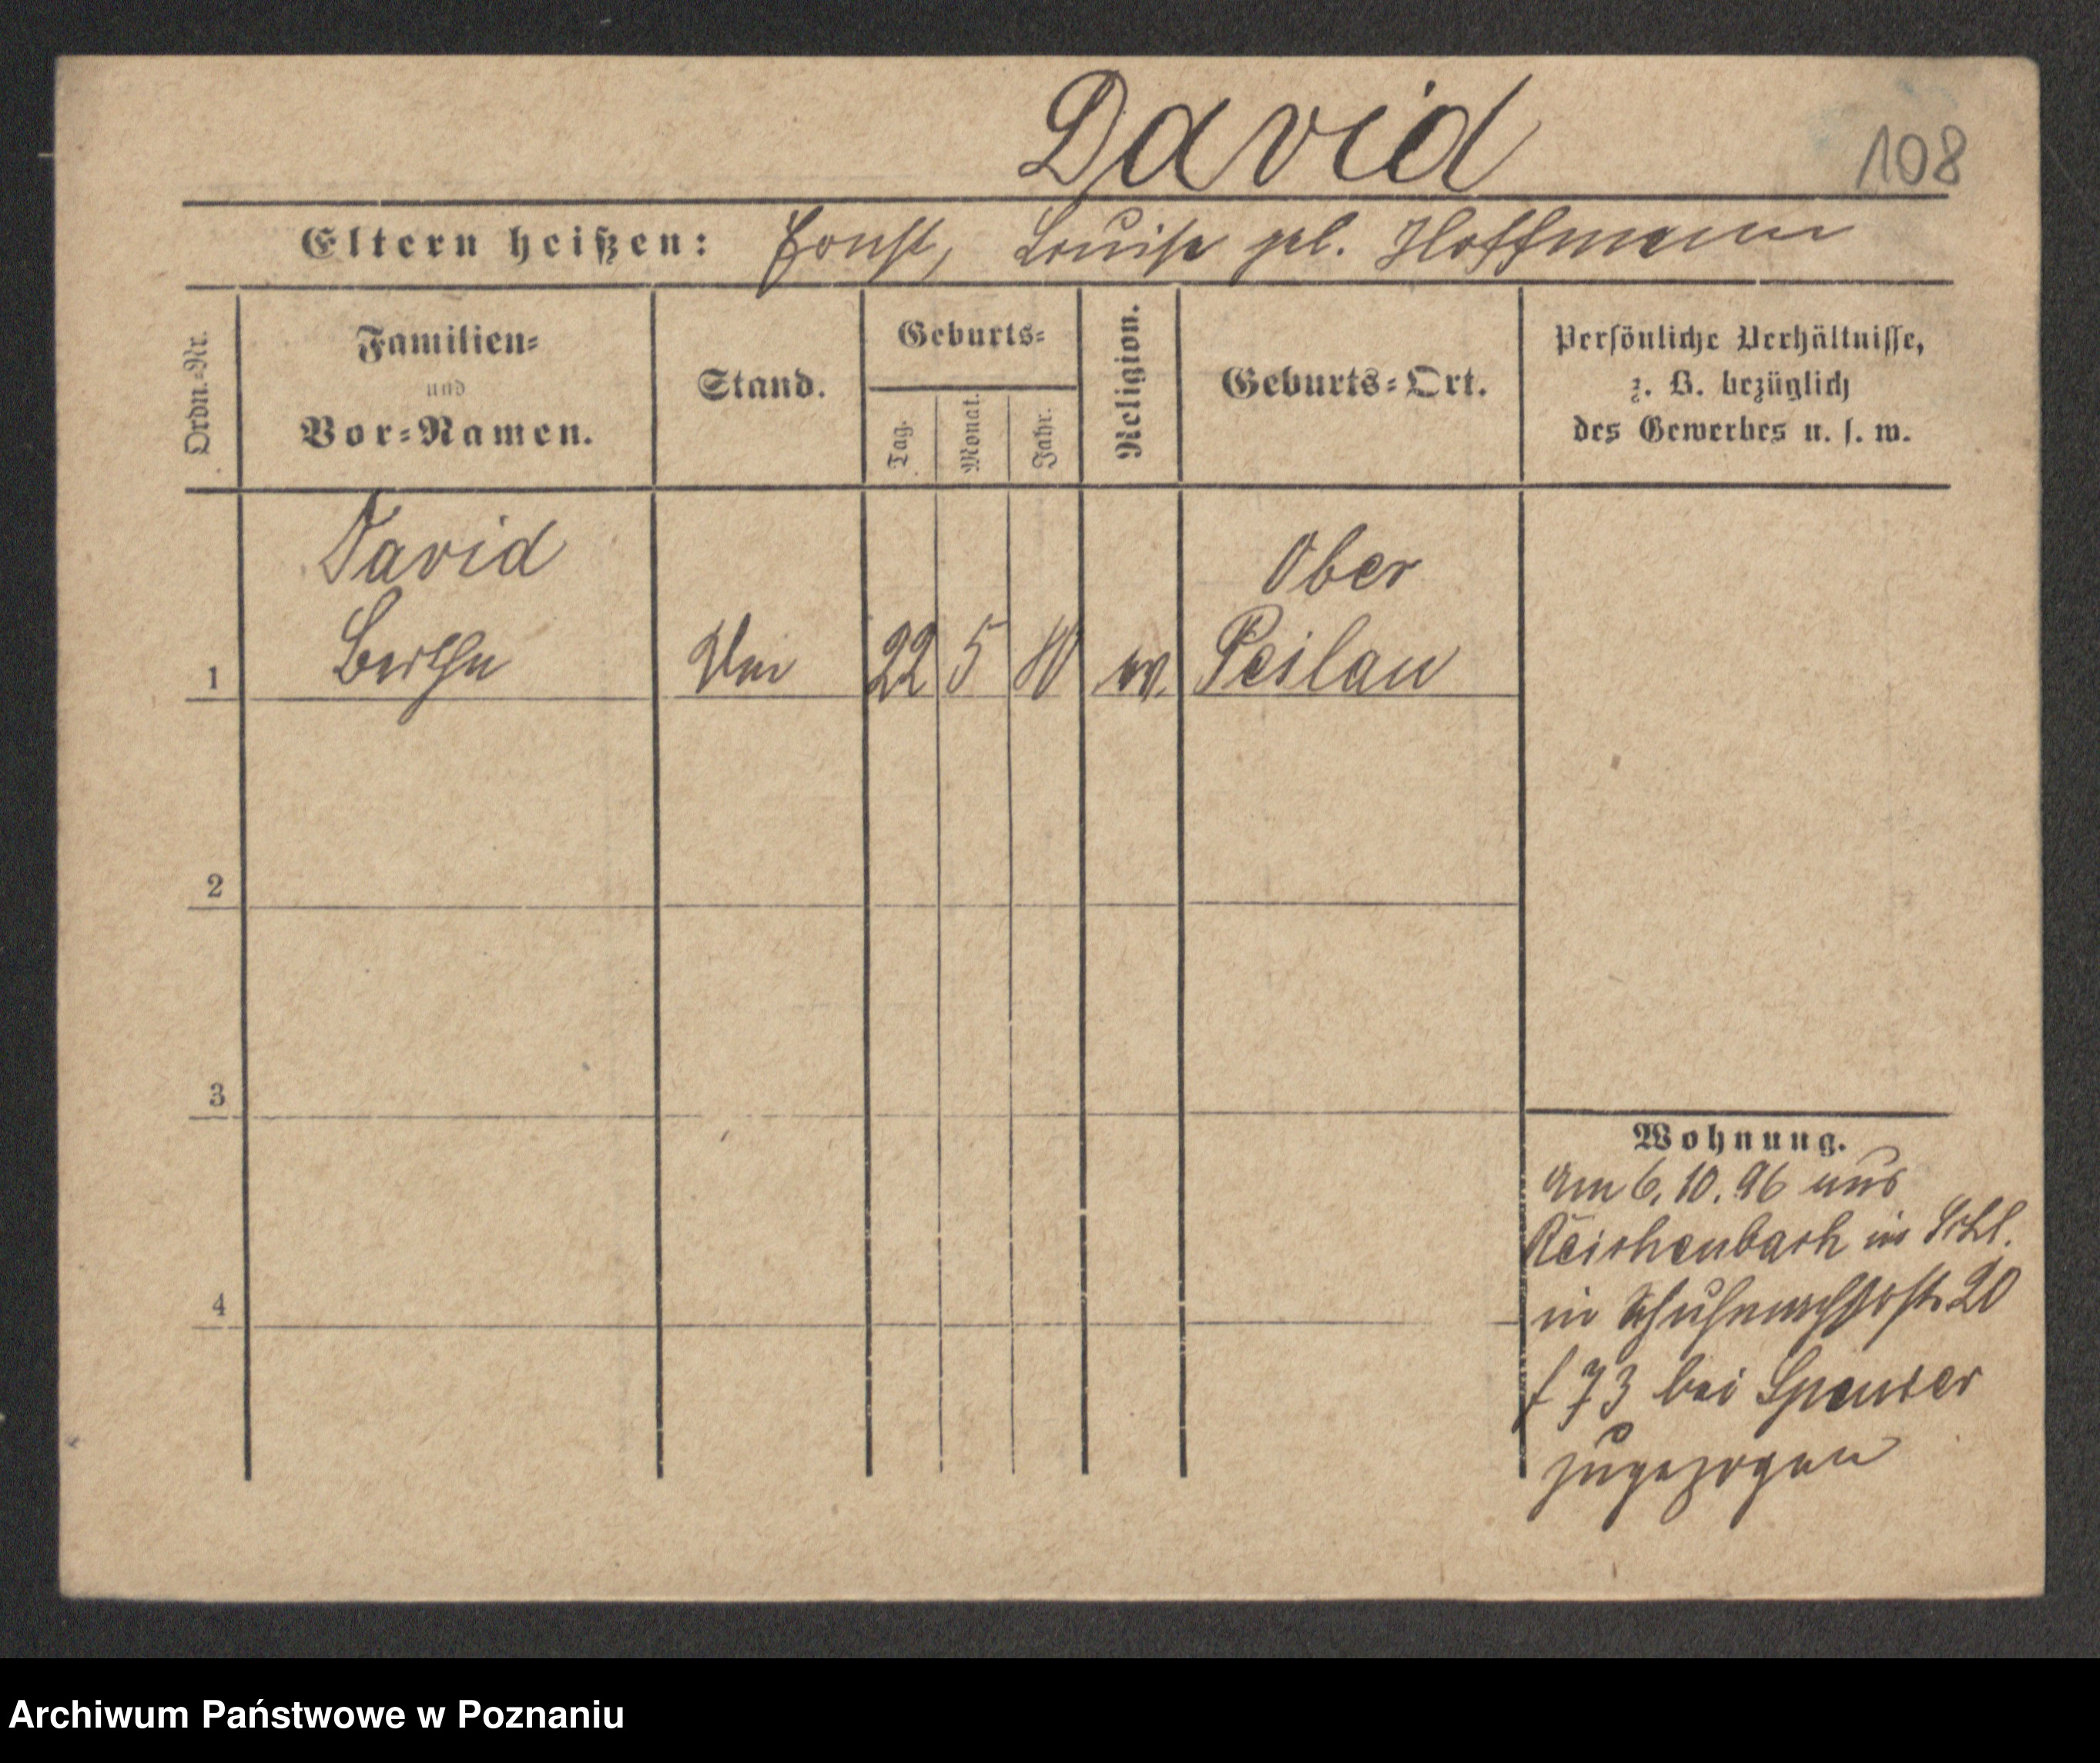 David
108
Eltern heißen: Ernst, Louise geb. Hoffmann
Ordn.-Nr.
Familien-
und
Vor-Namen.
Stand.
Geburts-
Tag.
Monat.
Jahr.
Religion.
Geburts-Ort.
Persönliche Verhältnisse,
z. B. bezüglich
des Gewerbes u. s. w.
David
Bertha
Ober
1
22 5 Peilau
2
3
4
Wohnung.
Am 6. 10. 96 aus
Reichenbach in Schl.
in Schuhmachstr. 20
f 73 bei
zugezogen
Archiwum Państwowe w Poznaniu